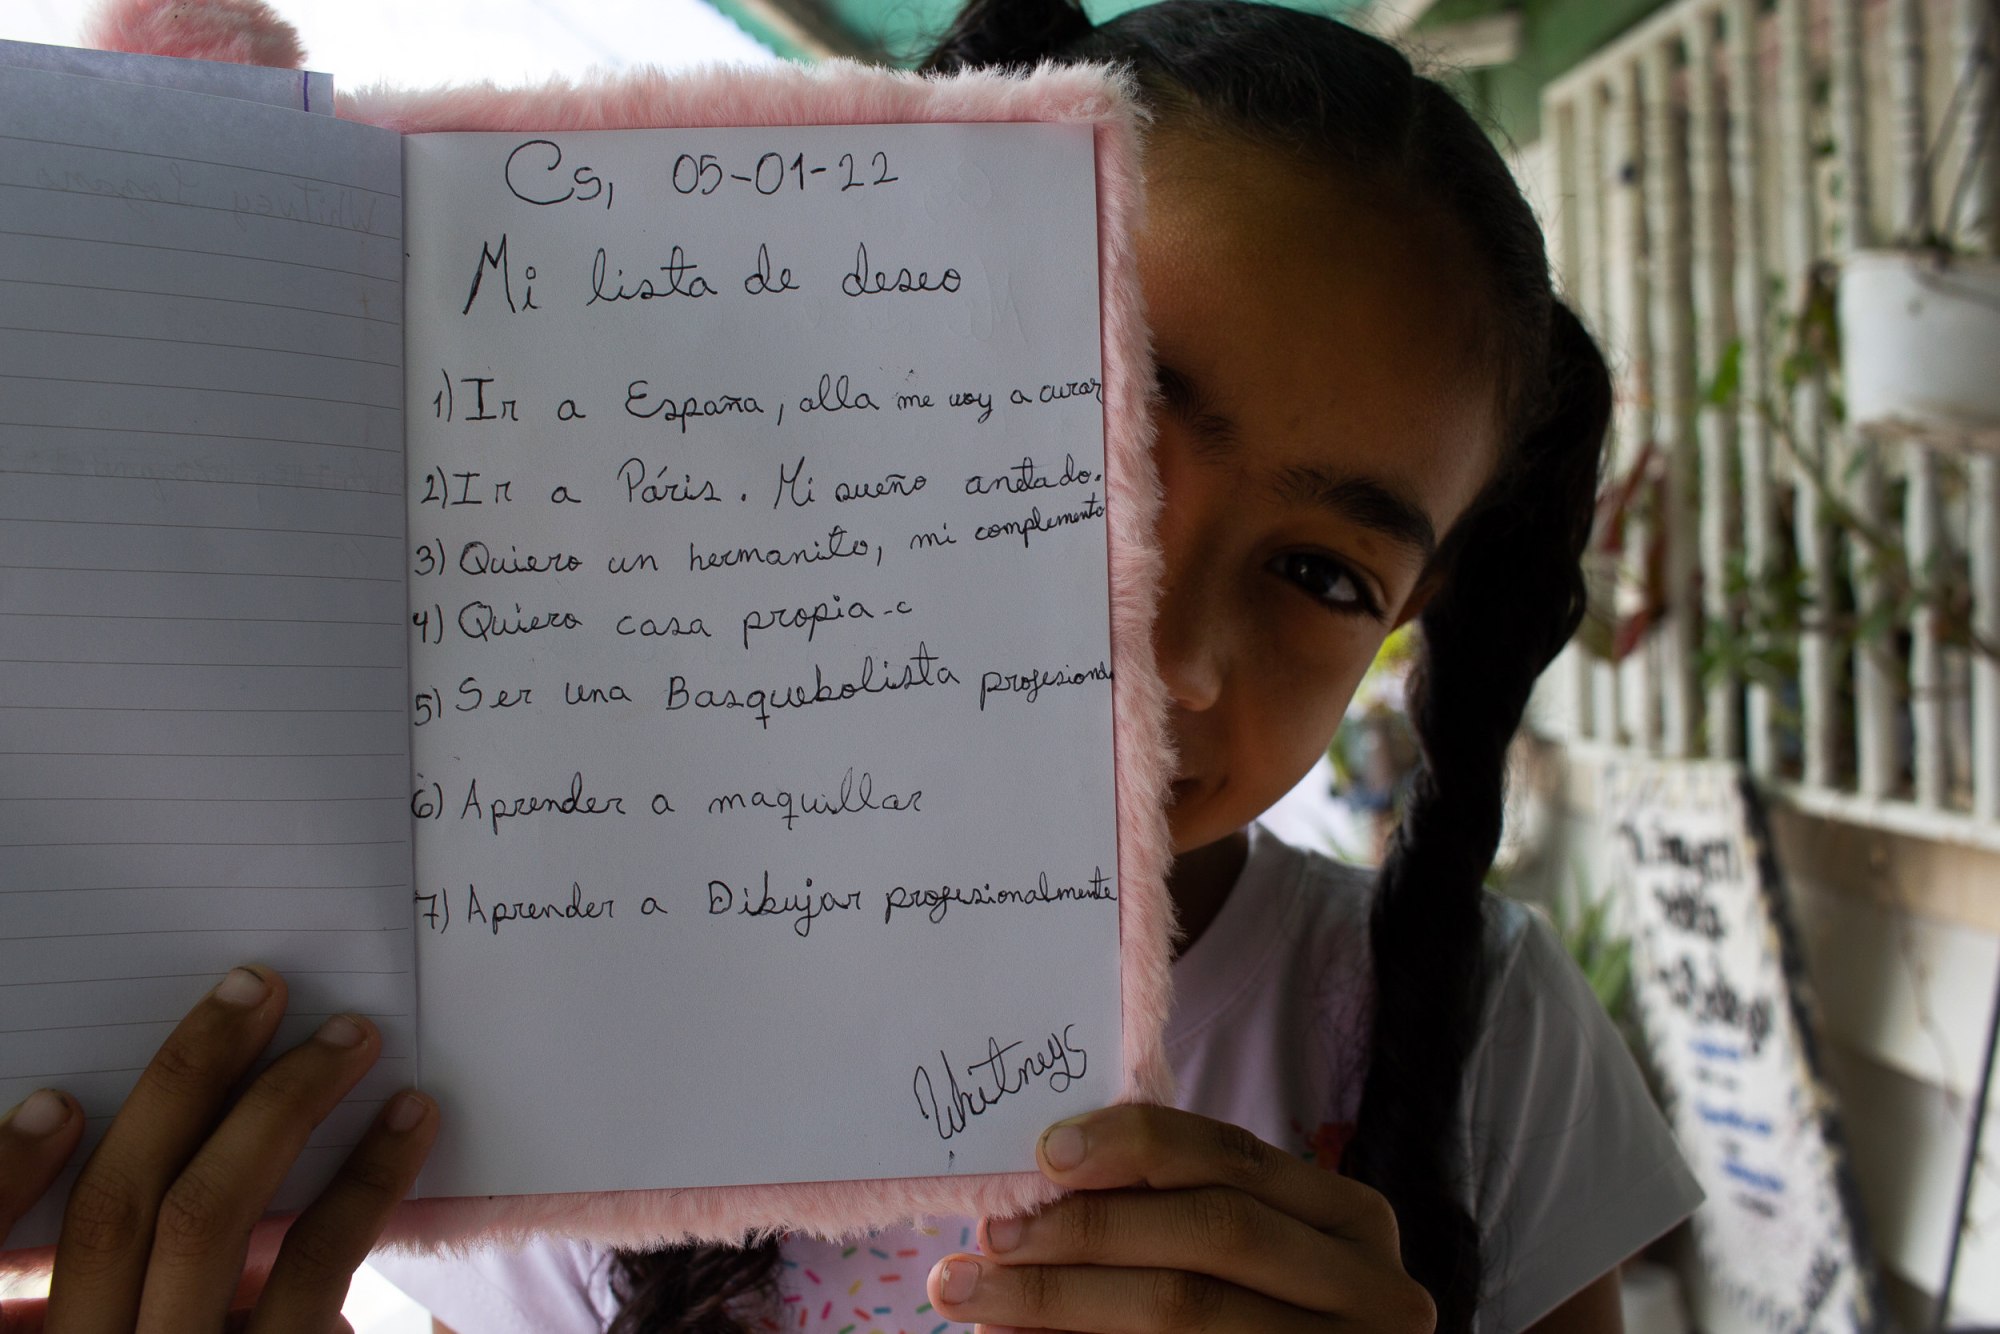 Cs, 05-01-22
Mi lista de deseo
1) Ir a España, alla me voy a curar
2) Ir a Páris. Mi sueño anelado.
3) Quiero un hermanito, mi complemento
4) Quiero casa propia -c
5) Ser una Basquebolista profesional
6) Aprender a maquillar
7) Aprender a Dibujar profesionalmente
Whitneys